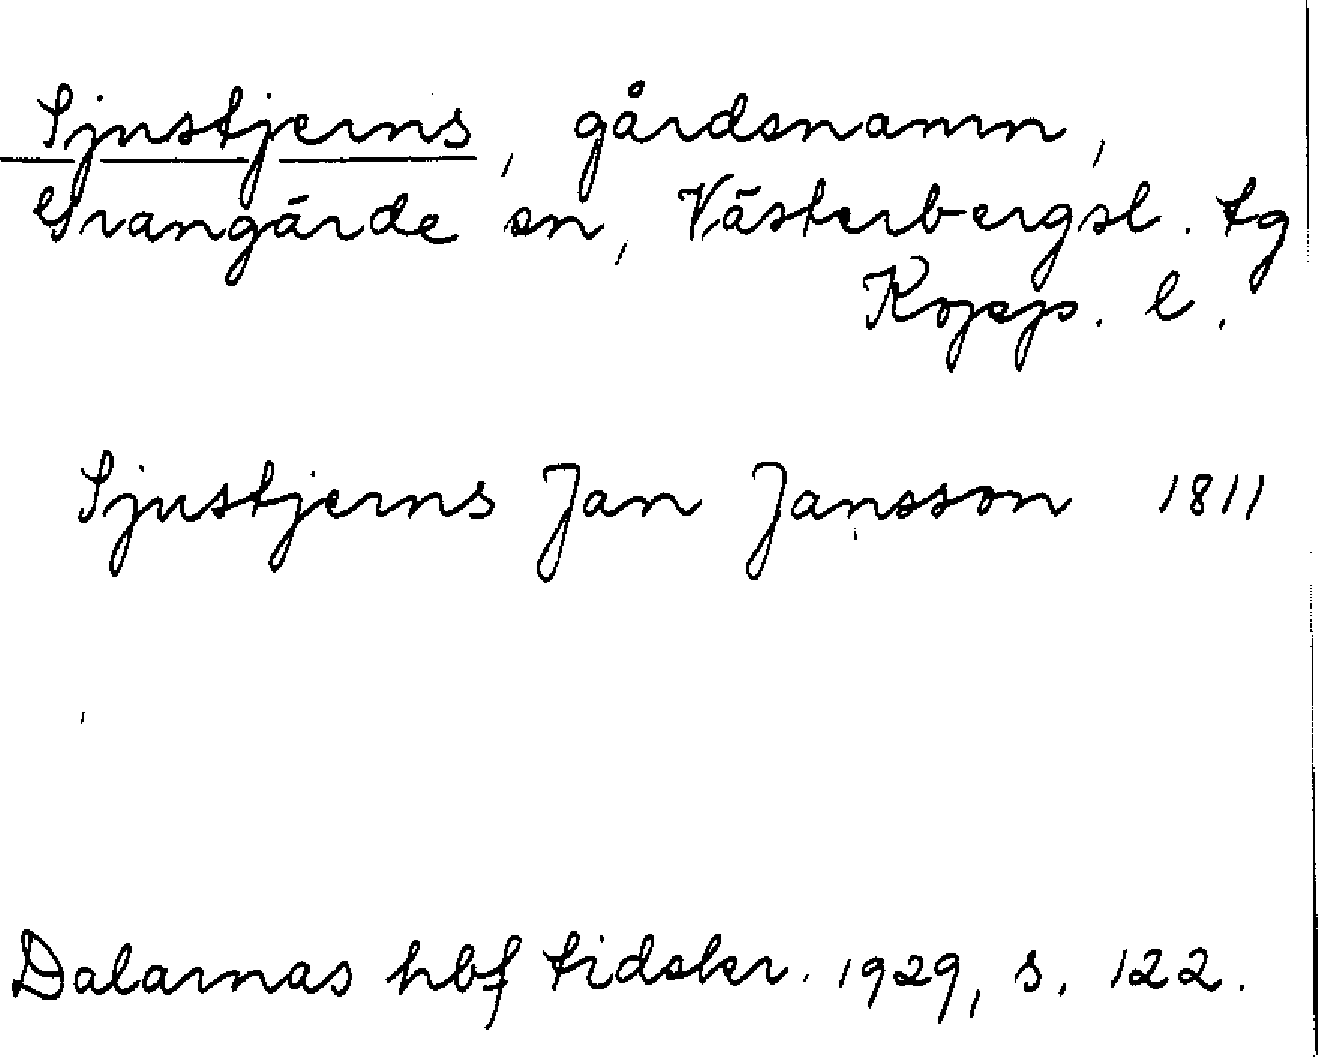 Sjustjerns, gårdsnamn,
Grangärde sn, Västerbergsl. tg
Kopp. l.
Sjustjerns Jan Jansson 1811
Dalarnas hbf tidskr. 1929, s. 122.